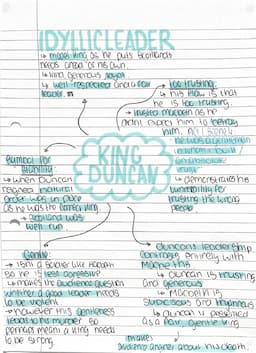 IDYLLIC LEADER
↳ model king as he puts Scotlands
needs ahead of his own.
↳ kind, generous, loyal
↳ well respected and a fair
leader.
too trusting
↳ his flaw is that
he is too trusting.
↳ trusted Macbeth as he
didn't expect him to betray
him. Act 1 Scene 4
he was a gentleman
on whom I built
an absolute
trust
↳ demonstrates his
vulnerability for
trusting the wrong
people
KING
DUNCAN
Symbol for
stability
↳ when Duncan
reigned natural
order was in place
as he was the rightful king
↳ Scotland was
well run
Gentle
↳ isn't a soldier like Macbeth
so he is less aggressive
↳ makes the audience question
whether a good leader needs
to be violent
↳ however this gentleness
lead to his murder so
perhaps mean a king needs
to be strong
Duncans leadership
contrasts entirely with
Macbeths
↳ Duncan is trusting
and generous
↳ Macbeth is
suspicious and tyrannous
↳ Duncan is presented
as a fair, gentle king
↓ makes
audience angrier about his death.